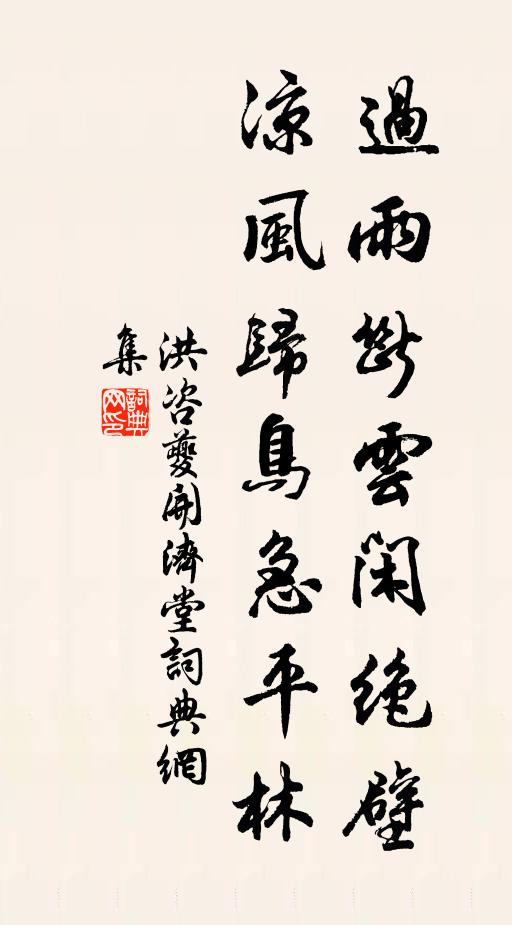 過雨斷雲閑絶壁
涼風歸鳥急平林
洪咨夔開濟堂詞典網
集
詞典网印